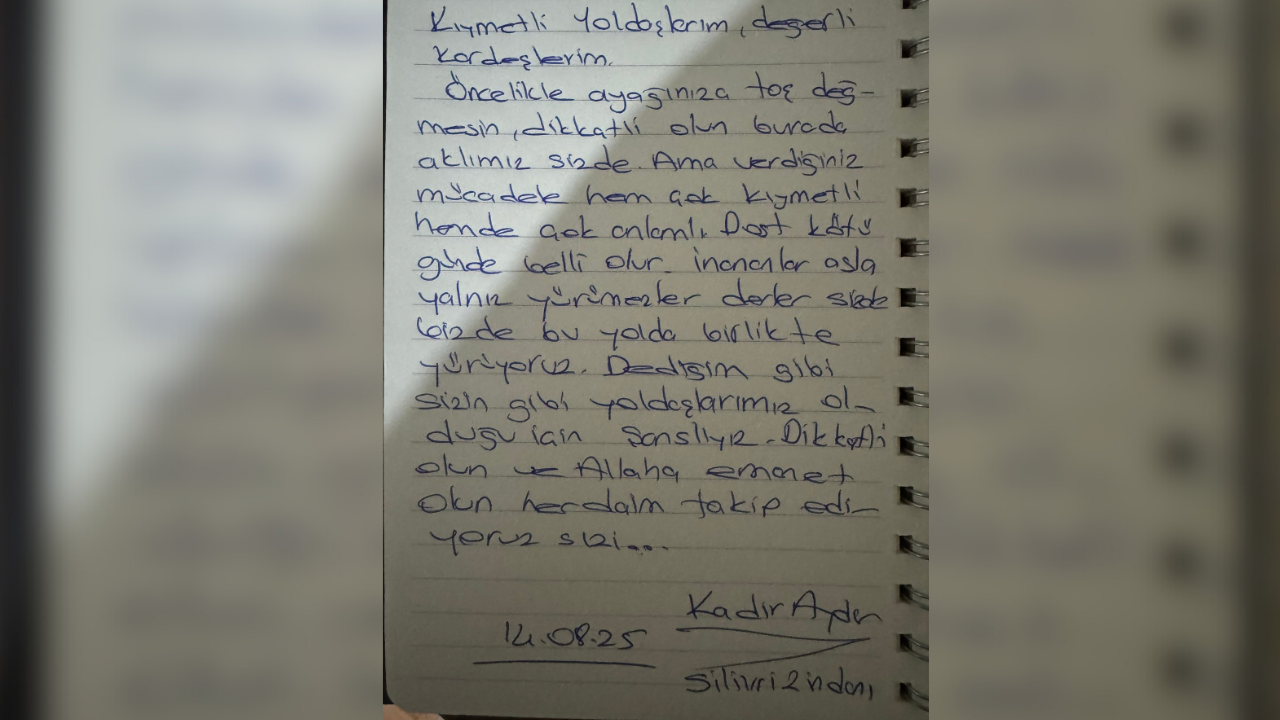 Kıymetli Yoldaşlarım, değerli
Kardeşlerim.
Öncelikle ayağınıza taş değ-
mesin, dikkatli olun burada
aklımız sizde. Ama verdiğiniz
mücadele hem çok kıymetli
hemde çok anlamlı. Dost kötü
günde belli olur. inananlar asla
yalnız yürümezler derler sizde
bizde bu yolda birlikte
yürüyoruz. Dediğim gibi
sizin gibi yoldaşlarımız ol-
duğu için şanslıyız. Dikkatli
olun ve Allaha emanet
olun herdaim takip edi-
yoruz sizi...
Kadir Aydar
14.08.25
Silivri Zindanı